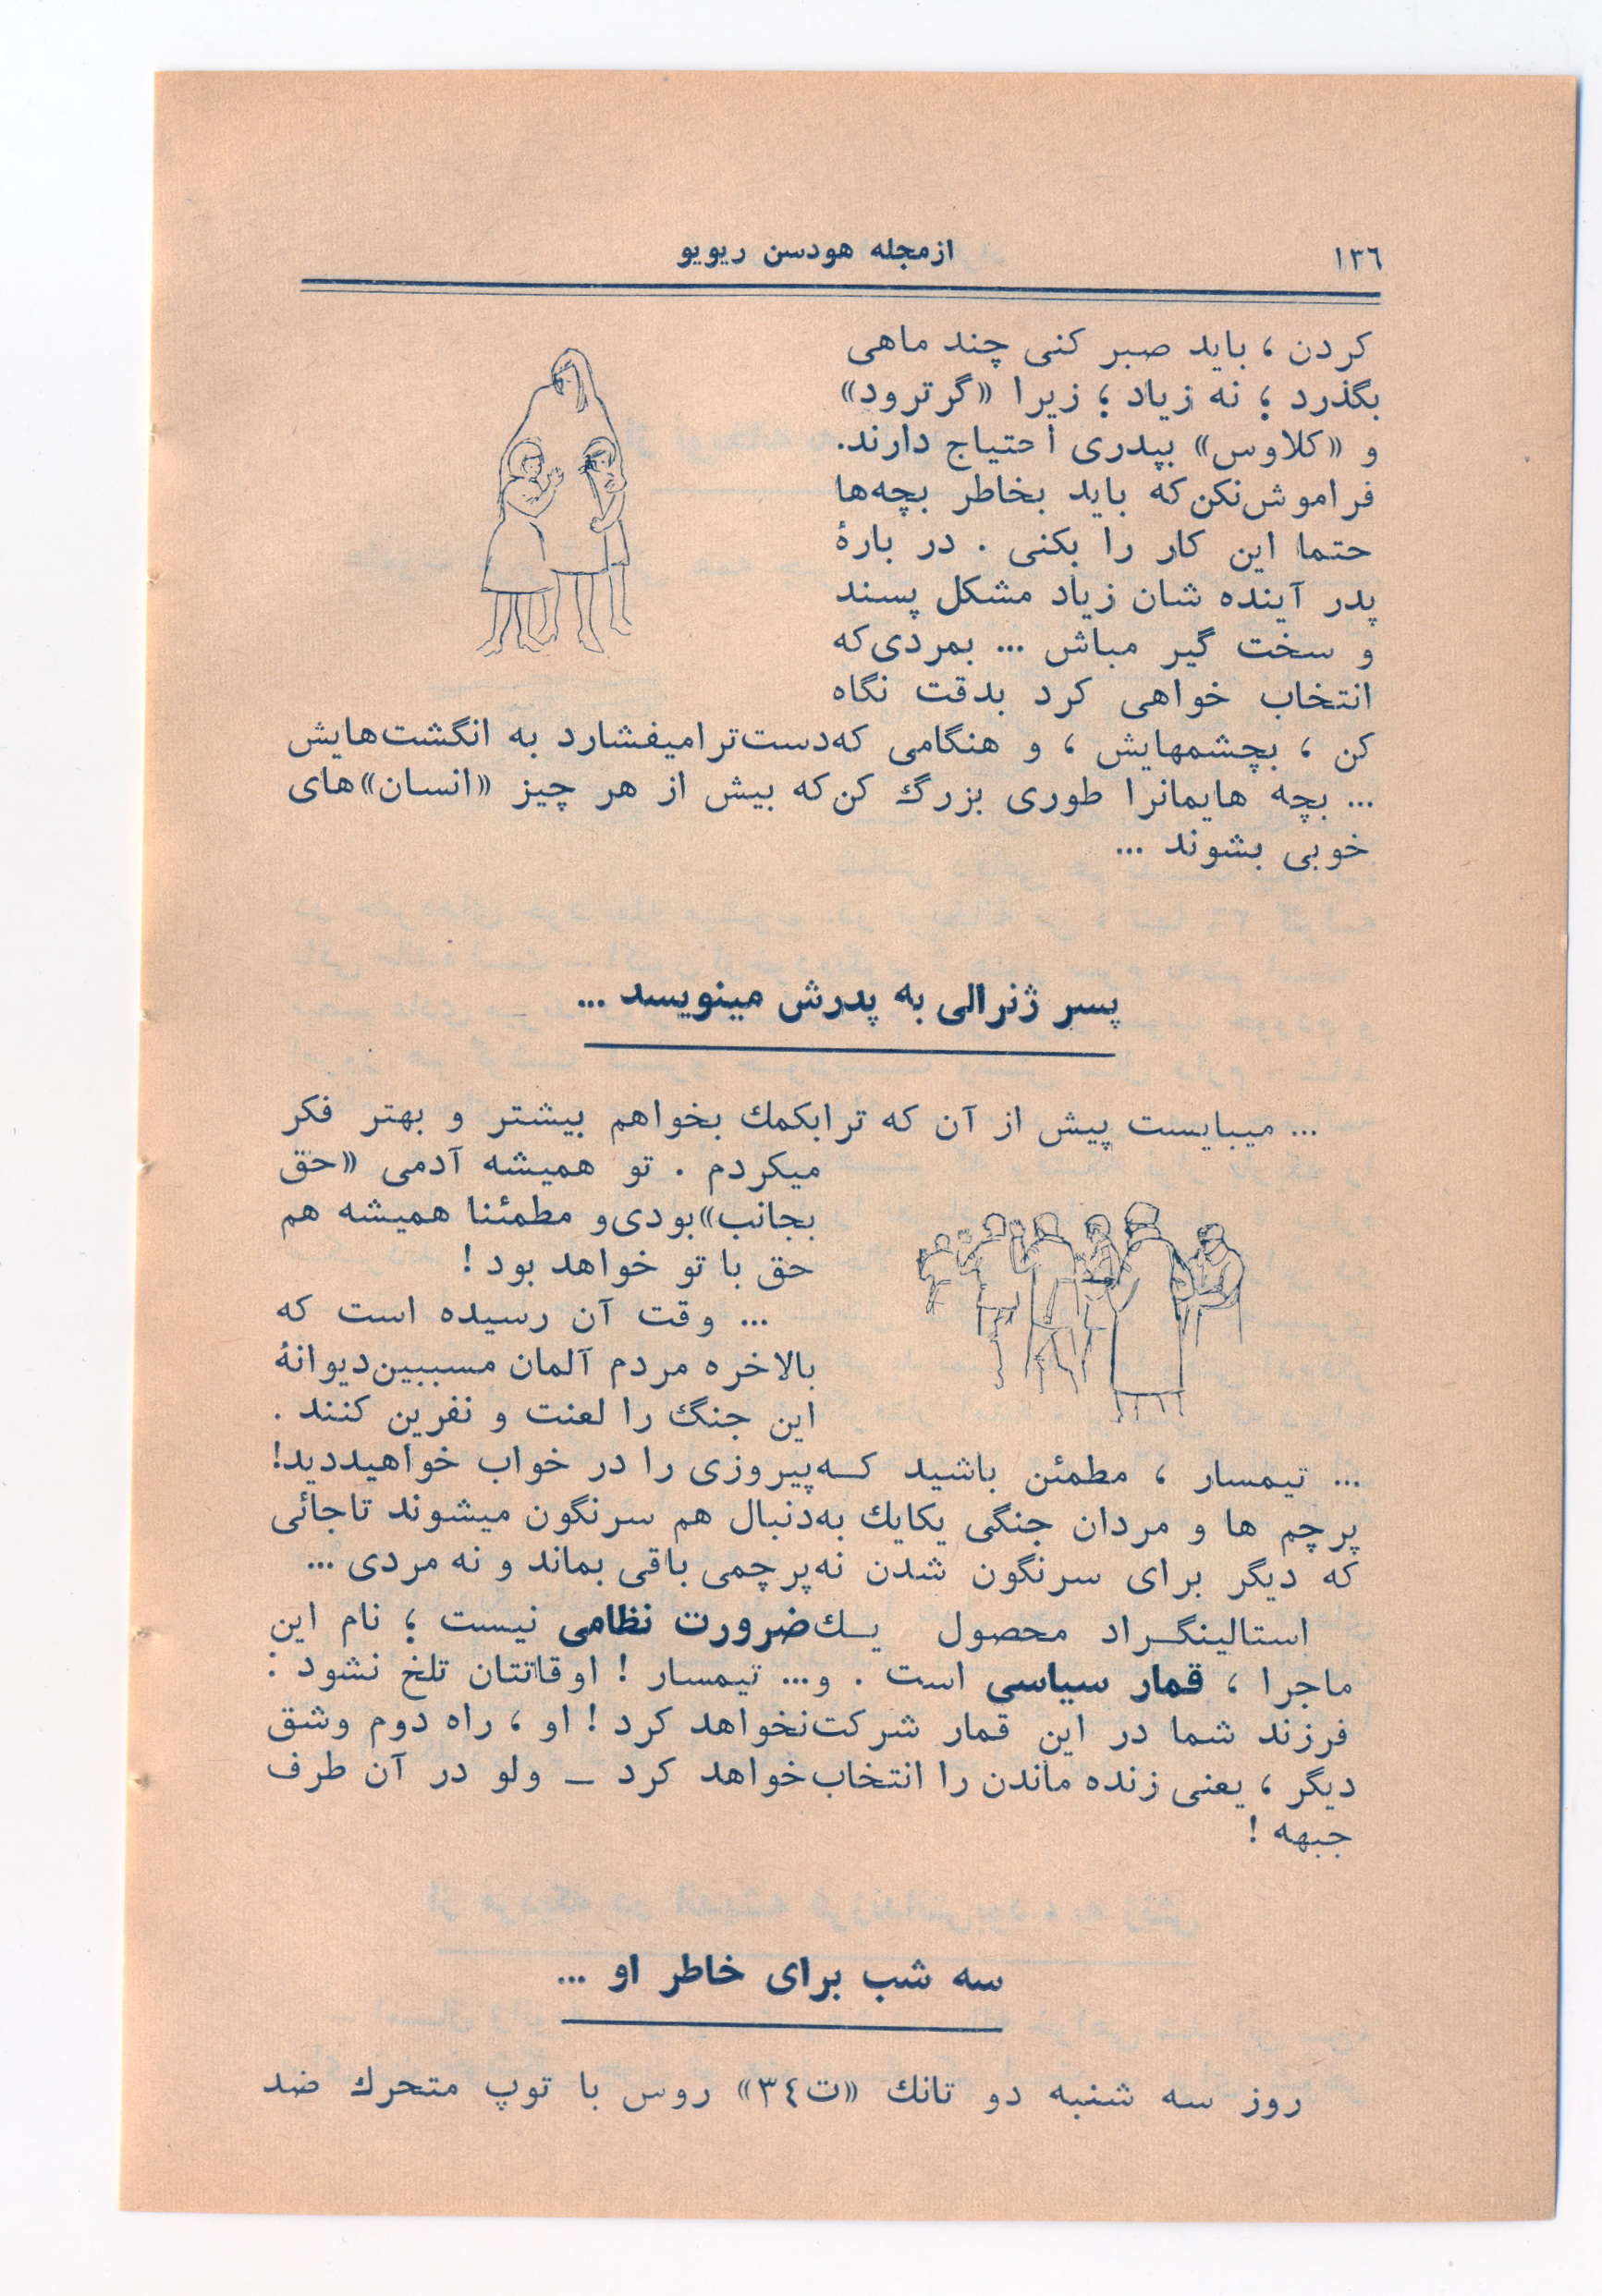 ۱۳٦
ازمجله هودسن ریویو
کردن ، باید صبر کنی چند ماهی
بگذرد ؛ نه زیاد ؛ زیرا «گرترود»
و «کلاوس» بپدری احتیاج دارند.
فراموش‌نکن‌که باید بخاطر بچه‌ها
حتما این کار را بکنی . در بارهٔ
پدر آینده شان زیاد مشکل پسند
و سخت گیر مباش ... بمردی‌که
انتخاب خواهی کرد بدقت نگاه
کن ، بچشمهایش ، و هنگامی که‌دست‌ترامیفشارد به انگشت‌هایش
... بچه هایمانرا طوری بزرگ کن‌که بیش از هر چیز «انسان»های
خوبی بشوند ...
پسر ژنرالی به پدرش مینویسد ...
... میبایست پیش از آن که ترابکمك بخواهم بیشتر و بهتر فکر
میکردم . تو همیشه آدمی «حق
بجانب»بودی‌و مطمئنا همیشه هم
حق با تو خواهد بود !
... وقت آن رسیده است که
بالاخره مردم آلمان مسببین‌دیوانهٔ
این جنگ را لعنت و نفرین کنند .
... تیمسار ، مطمئن باشید کـه‌پیروزی را در خواب خواهیددید!
پرچم ها و مردان جنگی یکایك به‌دنبال هم سرنگون میشوند تاجائی
که دیگر برای سرنگون شدن نه‌پرچمی باقی بماند و نه مردی ...
استالینگـراد محصول یـك‌ضرورت نظامی نیست ؛ نام این
ماجرا ، قمار سیاسی است . و... تیمسار ! اوقاتتان تلخ نشود :
فرزند شما در این قمار شرکت‌نخواهد کرد ! او ، راه دوم وشق
دیگر ، یعنی زنده ماندن را انتخاب‌خواهد کرد ـ ولو در آن طرف
جبهه !
سه شب برای خاطر او ...
روز سه شنبه دو تانك «ت۳٤» روس با توپ متحرك ضد